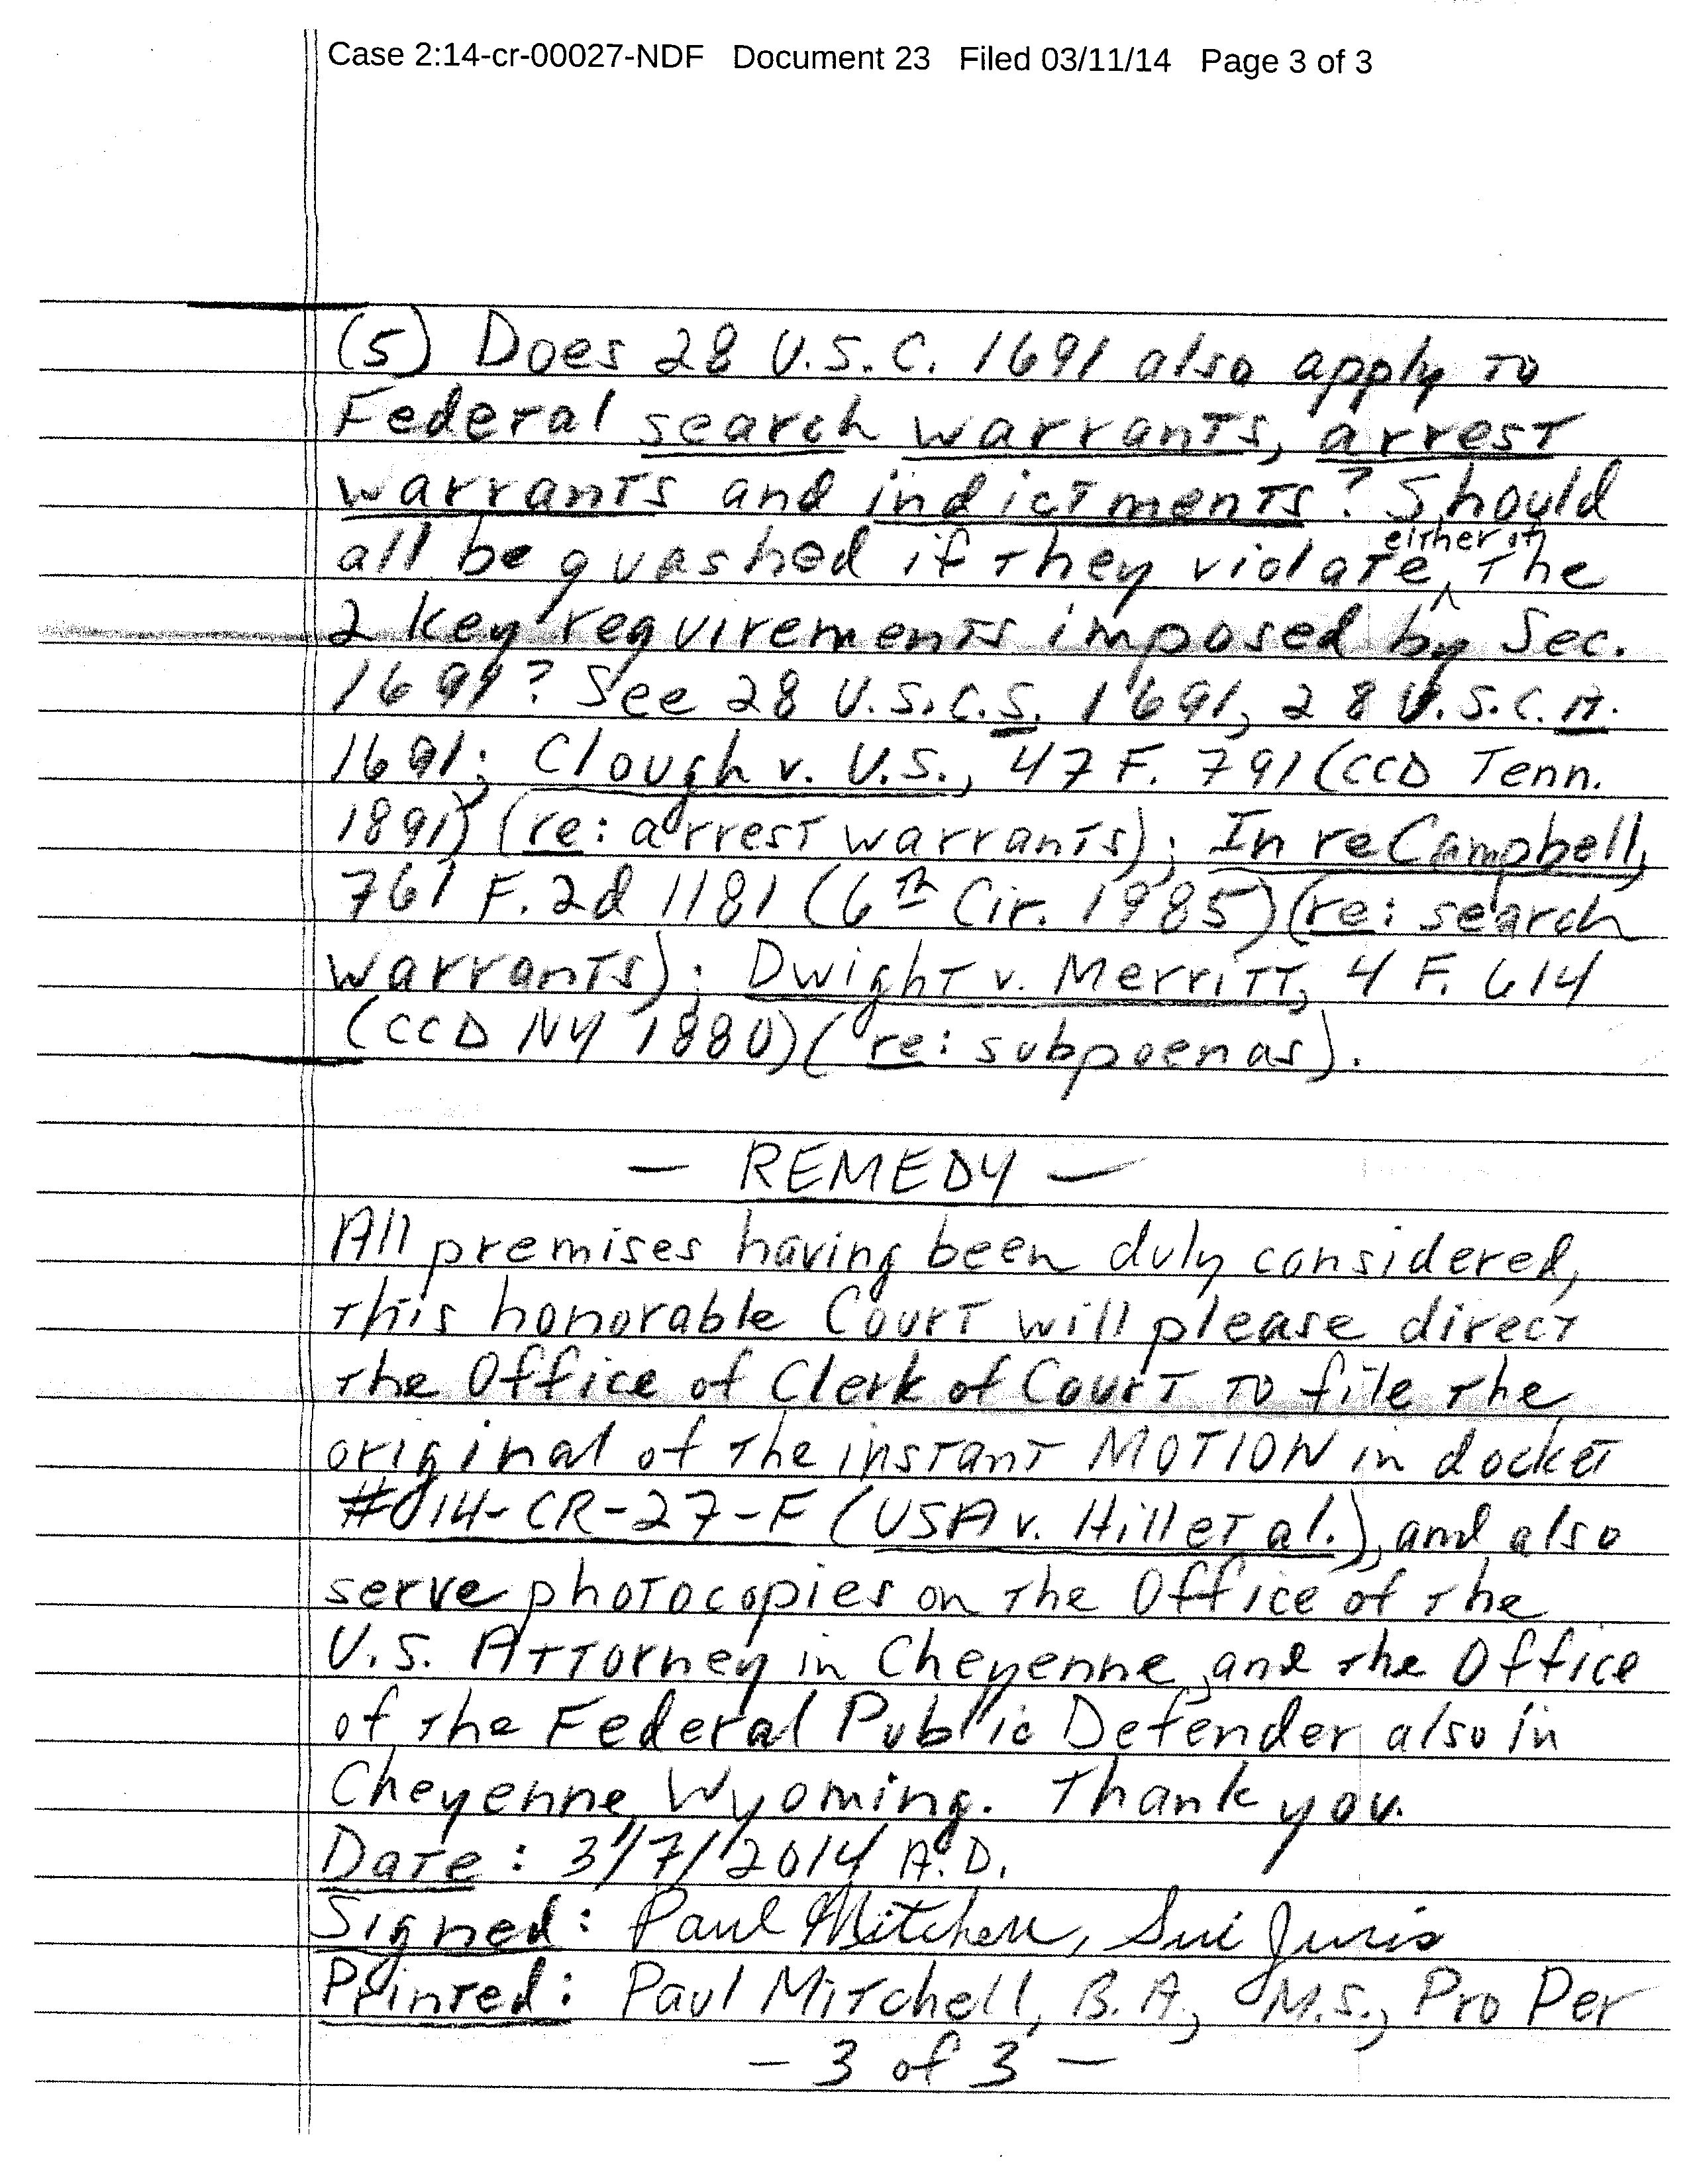 Case 2:14-cr-00027-NDF Document 23 Filed 03/11/14 Page 3 of 3
(5) Does 28 U.S.C. 1691 also apply to
Federal search warrants, arrest
warrants and indictments? Should
all be quashed if they violate either of the
2 key requirements imposed by Sec.
1691? See 28 U.S.C.S. 1691, 28 U.S.C.A.
1691; Clough v. U.S., 47 F. 791 (CCD Tenn.
1891) (re: arrest warrants); In re Campbell,
761 F.2d 1181 (6th Cir. 1985)(re: search
warrants); Dwight v. Merritt, 4 F. 614
(CCD NY 1880)(re: subpoenas).
— REMEDY —
All premises having been duly considered,
this honorable Court will please direct
the Office of Clerk of Court to file the
original of the instant MOTION in docket
#014-CR-27-F (USA v. Hill et al.), and also
serve photocopies on the Office of the
U.S. Attorney in Cheyenne, and the Office
of the Federal Public Defender also in
Cheyenne, Wyoming. Thank you.
Date: 3/7/2014 A.D.
Signed: Paul Mitchell, Sui Juris
Printed: Paul Mitchell, B.A., M.S., Pro Per
- 3 of 3 -